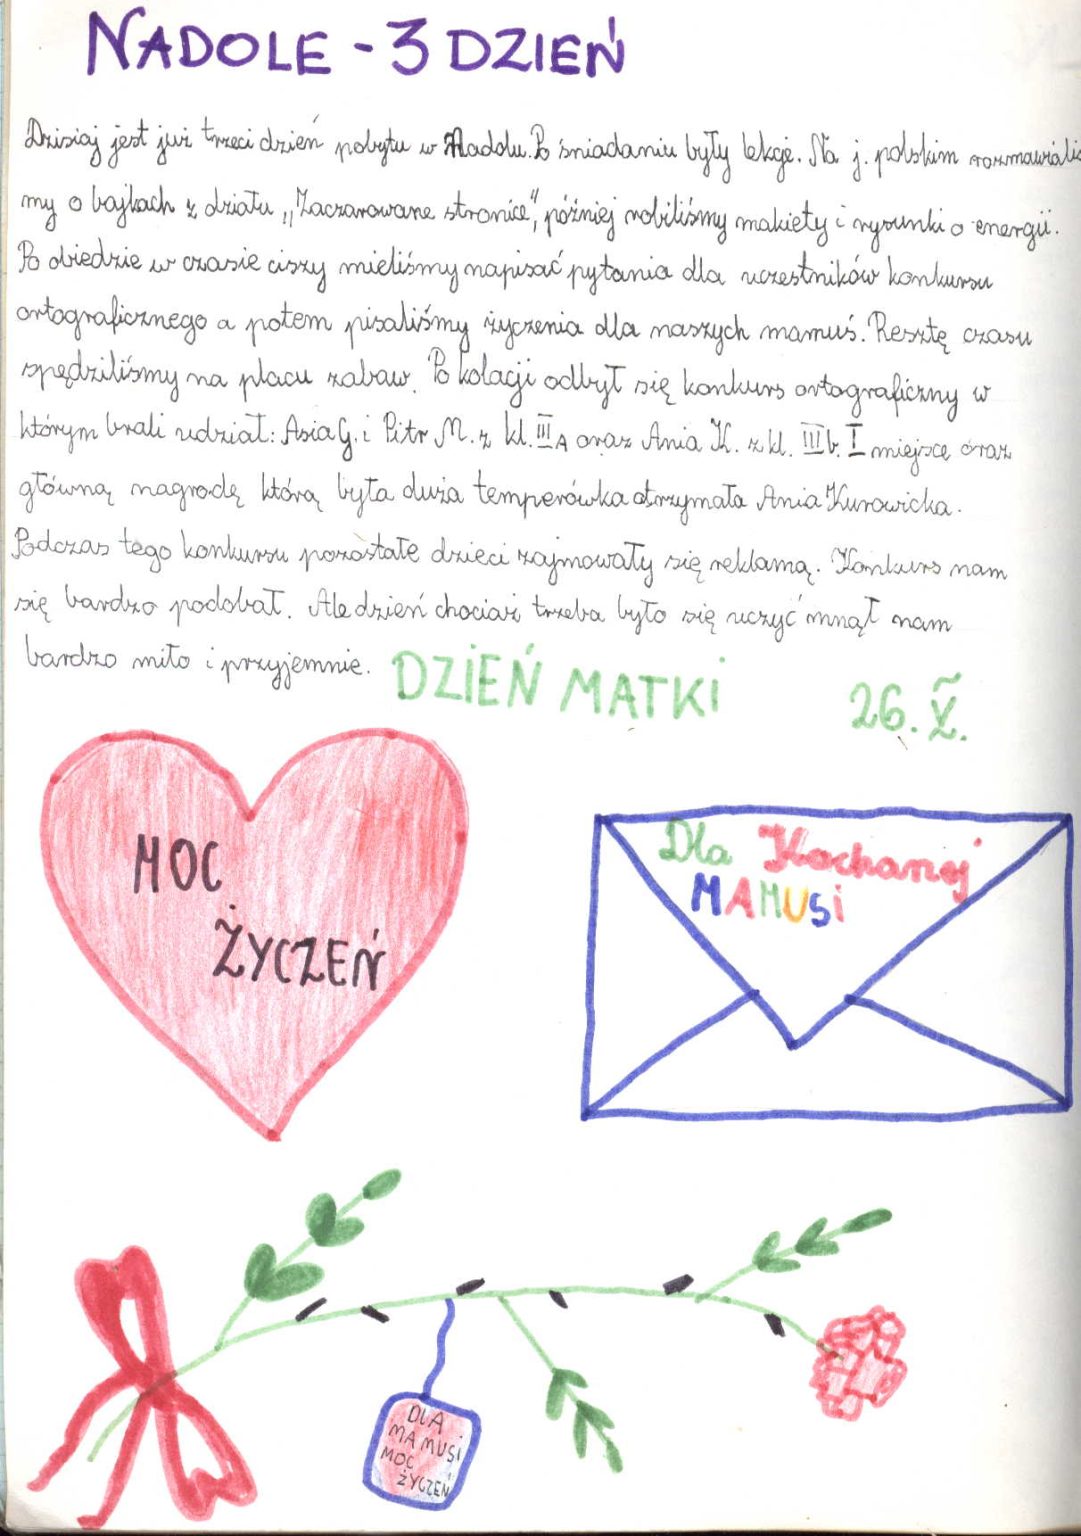 NADOLE - 3 DZIEŃ
Dzisiaj jest już trzeci dzień pobytu w Nadolu. Po śniadaniu były lekcje. Na j. polskim rozmawialiś
my o bajkach z działu „Zaczarowane stronice", później robiliśmy makiety i rysunki o energii.
Po obiedzie w czasie ciszy mieliśmy napisać pytania dla uczestników konkursu
ortograficznego a potem pisaliśmy życzenia dla naszych mamuś. Resztę czasu
spędziliśmy na placu zabaw. Po kolacji odbył się konkurs ortograficzny w
którym brali udział: Asia G. i Piotr M. z kl. III A oraz Ania K. z kl. III b. I miejsce oraz
główną nagrodę którą była duża temperówka otrzymała Ania Kurowicka.
Podczas tego konkursu pozostałe dzieci zajmowały się reklamą. Konkurs nam
się bardzo podobał. Ale dzień chociaż trzeba było się uczyć mnął nam
bardzo miło i przyjemnie.
DZIEŃ MATKI 26. V.
MOC
ŻYCZEŃ
Dla Kochanej
MAMUSi
DLA
MAMUSi
MOC
ŻYCZEŃ